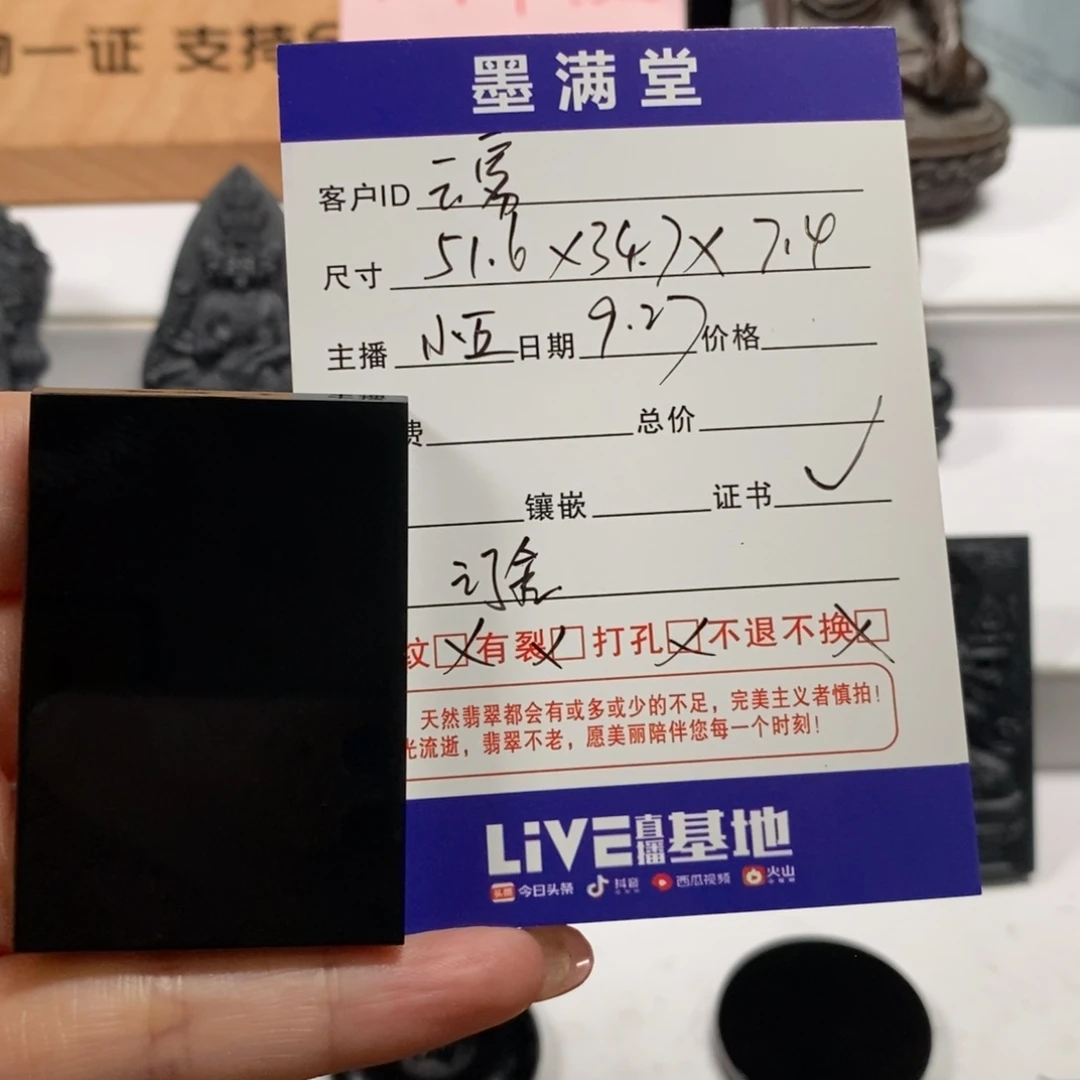 一证 支持
墨满堂
客户ID 云
尺寸 51.6×34.7×7.4
主播 小五 日期 9.27 价格
费 总价
镶嵌 证书 ✓
纹 有裂 打孔 不退不换
天然翡翠都会有或多或少的不足，完美主义者慎拍！
光流逝，翡翠不老，愿美丽陪伴您每一个时刻！
LiVE直播基地
头条 今日头条 抖音 西瓜视频 火山